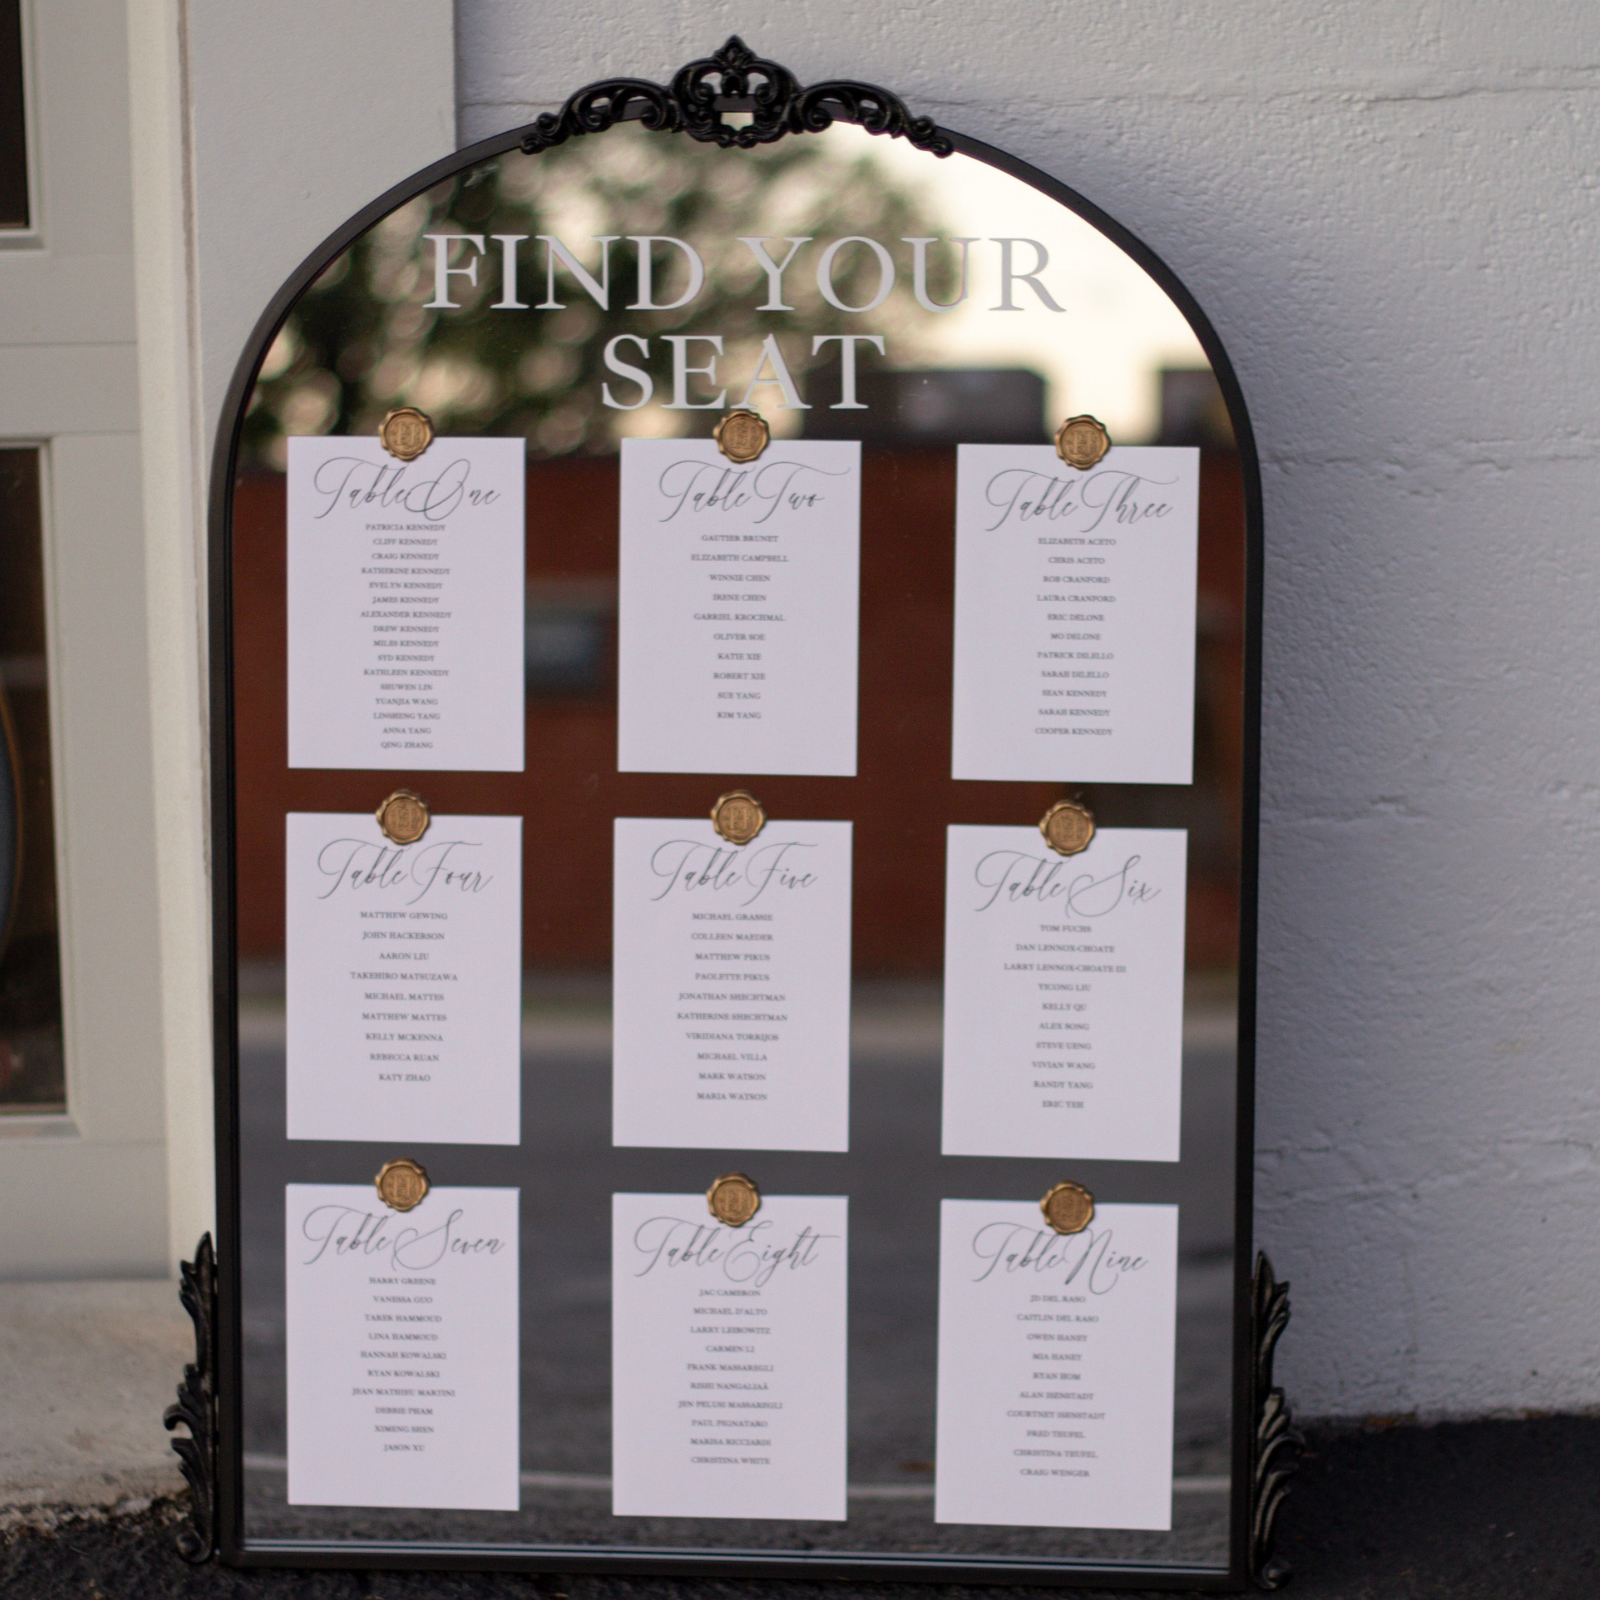 FIND YOUR
SEAT
Table One
PATRICIA KENNEDY
CLIFF KENNEDY
CRAIG KENNEDY
KATHERINE KENNEDY
EVELYN KENNEDY
JAMES KENNEDY
ALEXANDER KENNEDY
DREW KENNEDY
MILES KENNEDY
SYD KENNEDY
KATHLEEN KENNEDY
SHUWEN LIN
YUANJIA WANG
LINSHENG YANG
ANNA YANG
QING ZHANG
Table Two
GAUTIER BRUNET
ELIZABETH CAMPBELL
WINNIE CHEN
IRENE CHEN
GABRIEL KROCHMAL
OLIVER SOE
KATIE XIE
ROBERT XIE
SUE YANG
KIM YANG
Table Three
ELIZABETH ACETO
CHRIS ACETO
ROB CRANFORD
LAURA CRANFORD
ERIC DELONE
MO DELONE
PATRICK DILELLO
SARAH DILELLO
SEAN KENNEDY
SARAH KENNEDY
COOPER KENNEDY
Table Four
MATTHEW GEWING
JOHN HACKERSON
AARON LIU
TAKEHIRO MATSUZAWA
MICHAEL MATTES
MATTHEW MATTES
KELLY MCKENNA
REBECCA RUAN
KATY ZHAO
Table Five
MICHAEL GRASSIE
COLLEEN MAEDER
MATTHEW PIKUS
PAOLETTE PIKUS
JONATHAN SHECHTMAN
KATHERINE SHECHTMAN
VIRIDIANA TORRIJOS
MICHAEL VILLA
MARK WATSON
MARIA WATSON
Table Six
TOM FUCHS
DAN LENNOX-CHOATE
LARRY LENNOX-CHOATE III
YICONG LIU
KELLY QU
ALEX SONG
STEVE UENG
VIVIAN WANG
RANDY YANG
ERIC YEH
Table Seven
HARRY GREENE
VANESSA GUO
TAREK HAMMOUD
LINA HAMMOUD
HANNAH KOWALSKI
RYAN KOWALSKI
JEAN MATHIEU MARTINI
DEBBIE PHAM
XIMENG SHEN
JASON XU
Table Eight
JAC CAMERON
MICHAEL D'ALTO
LARRY LEIBOWITZ
CARMEN LI
FRANK MASSAREGLI
RISHI NANGALIAA
JEN PELUSI MASSAREGLI
PAUL PIGNATARO
MARISA RICCIARDI
CHRISTINA WHITE
Table Nine
JD DEL RASO
CAITLIN DEL RASO
OWEN HANEY
MIA HANEY
RYAN HOM
ALAN ISENSTADT
COURTNEY ISENSTADT
FRED TEUFEL
CHRISTINA TEUFEL
CRAIG WENGER